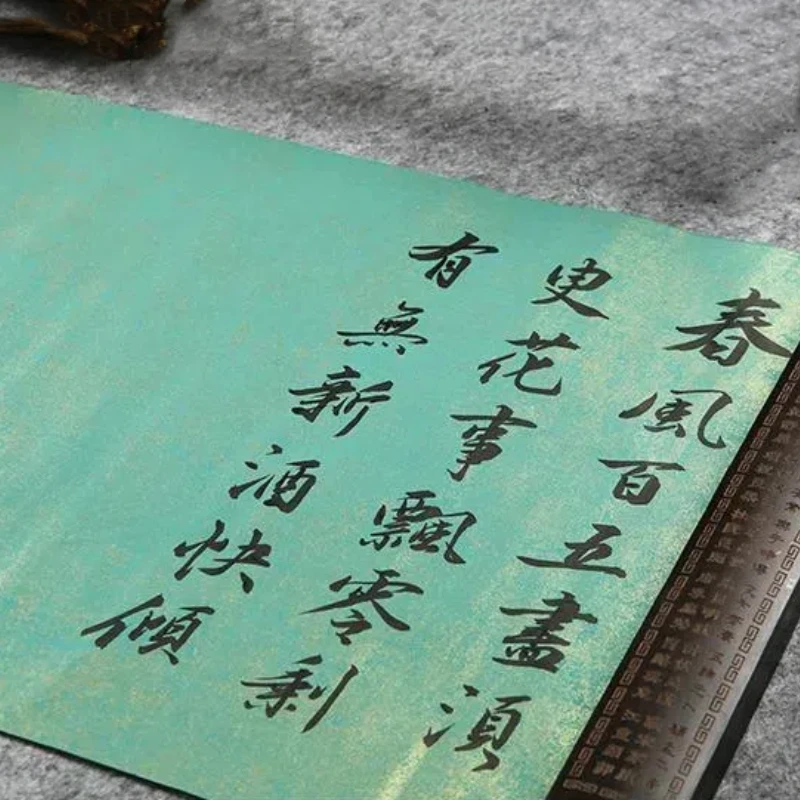 春風百五盡須
臾花事飄零剩
有無新酒快傾